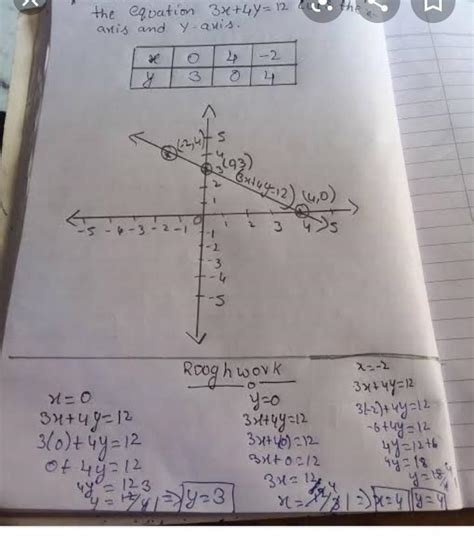 the equation 3x+4y=12 the
axis and y-axis.
x 0 4 -2
y 3 0 4
5
(-2,4)
4
3 (0,3)
2
(3x+4y=12) (4,0)
1
-5 -4 -3 -2 -1 0 1 2 3 4 5
-1
-2
-3
-4
-5
Roogh work
x=0
3x+4y=12
3(0)+4y=12
0+4y=12
4y=12
y=12/4 ⇒ y=3
y=0
3x+4y=12
3x+4(0)=12
3x+0=12
3x=12
x=4
x=-2
3x+4y=12
3(-2)+4y=12
-6+4y=12
4y=12+6
4y=18
y=4